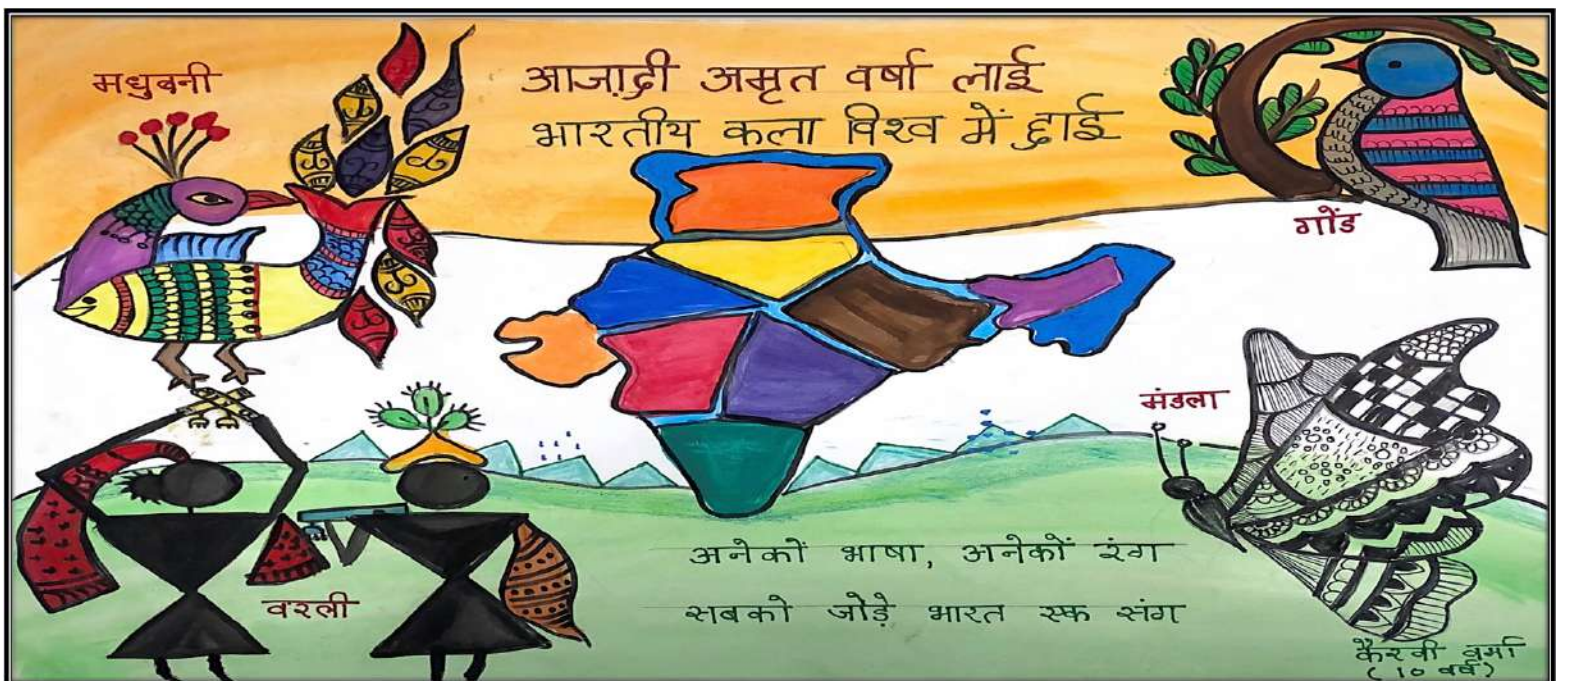 मधुबनी
आज़ादी अमृत वर्षा लाई
भारतीय कला विश्व में छाई
गोंड
मंडला
वरली
अनेकों भाषा, अनेकों रंग
सबको जोड़े भारत एक संग
कैरवी वर्मा
(10 वर्ष)